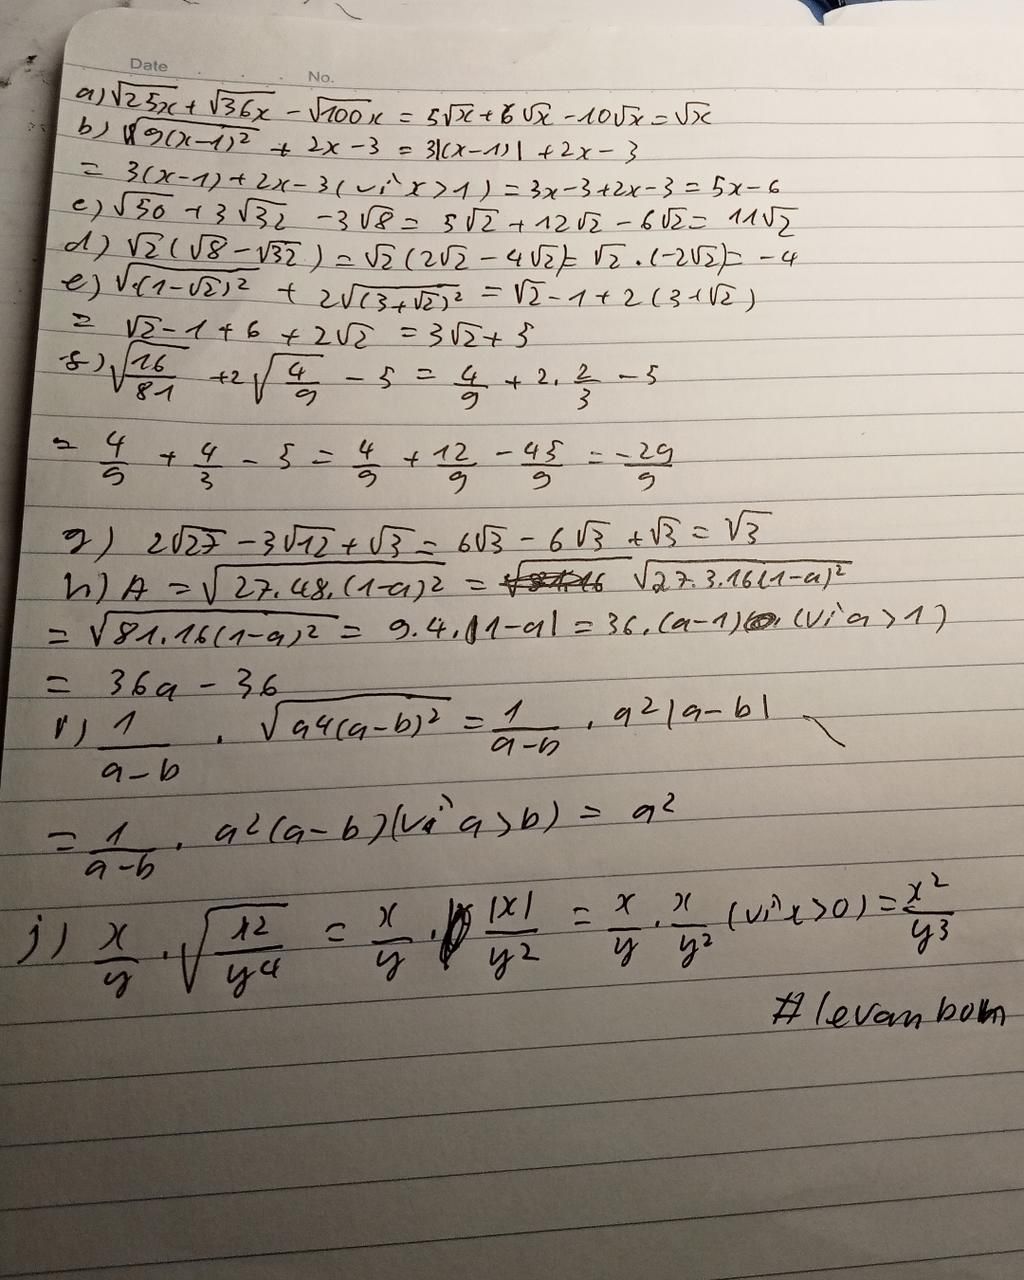 Date No.
a) √25x + √36x - √100x = 5√x + 6√x - 10√x = √x
b) √9(x-1)² + 2x - 3 = 3|(x-1)| + 2x - 3
= 3(x-1) + 2x - 3 (vì x > 1) = 3x - 3 + 2x - 3 = 5x - 6
c) √50 + 3√32 - 3√8 = 5√2 + 12√2 - 6√2 = 11√2
d) √2(√8 - √32) = √2(2√2 - 4√2) = √2.(-2√2) = -4
e) √(1-√2)² + 2√(3+√2)² = √2 - 1 + 2(3+√2)
= √2 - 1 + 6 + 2√2 = 3√2 + 5
f) √16/81 + 2√4/9 - 5 = 4/9 + 2.2/3 - 5
= 4/9 + 4/3 - 5 = 4/9 + 12/9 - 45/9 = -29/9
g) 2√27 - 3√12 + √3 = 6√3 - 6√3 + √3 = √3
h) A = √27.48.(1-a)² = √27.3.16(1-a)²
= √81.16(1-a)² = 9.4.|1-a| = 36.(a-1) (vì a > 1)
= 36a - 36
i) 1/a-b . √a4(a-b)² = 1/a-b . a²|a-b|
= 1/a-b . a²(a-b) (vì a > b) = a²
j) x/y . √x2/y4 = x/y . |x|/y2 = x/y . x/y² (vì x > 0) = x²/y3
# levanbom